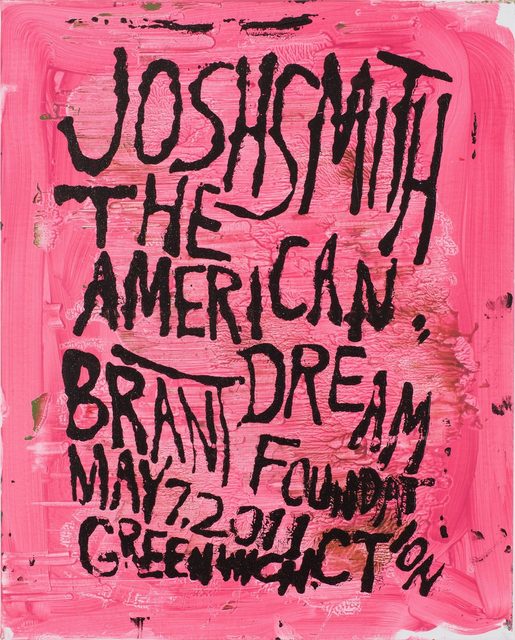 JOSHSMITH
THE
AMERICAN
DREAM
BRANT
FOUNDATION
MAY 7, 2011
GREENWICH. CT